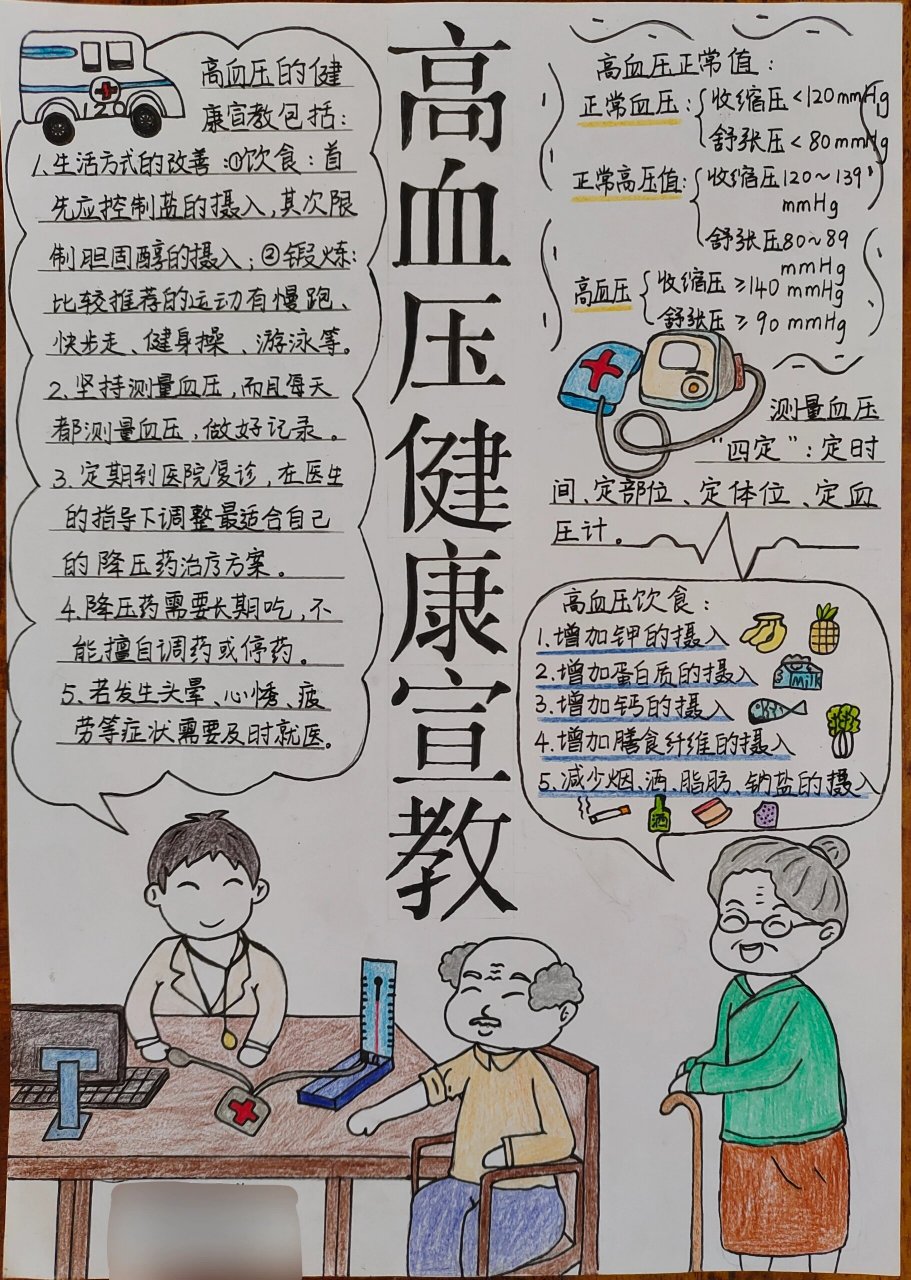 高血压健康宣教
120
高血压的健
康宣教包括:
1.生活方式的改善:①饮食:首
先应控制盐的摄入,其次限
制胆固醇的摄入;②锻炼:
比较推荐的运动有慢跑、
快步走、健身操、游泳等。
2.坚持测量血压,而且每天
都测量血压,做好记录。
3.定期到医院复诊,在医生
的指导下调整最适合自己
的降压药治疗方案。
4.降压药需要长期吃,不
能擅自调药或停药。
5.若发生头晕、心悸、疲
劳等症状需要及时就医。
高血压正常值:
正常血压:收缩压<120mmHg
舒张压<80mmHg
正常高压值:收缩压120~139
mmHg
舒张压80~89
mmHg
高血压 收缩压≥140mmHg
舒张压≥90mmHg
测量血压
“四定”:定时
间、定部位、定体位、定血
压计。
高血压饮食:
1.增加钾的摄入
2.增加蛋白质的摄入
MILK
3.增加钙的摄入
4.增加膳食纤维的摄入
5.减少烟、酒、脂肪、钠盐的摄入
酒